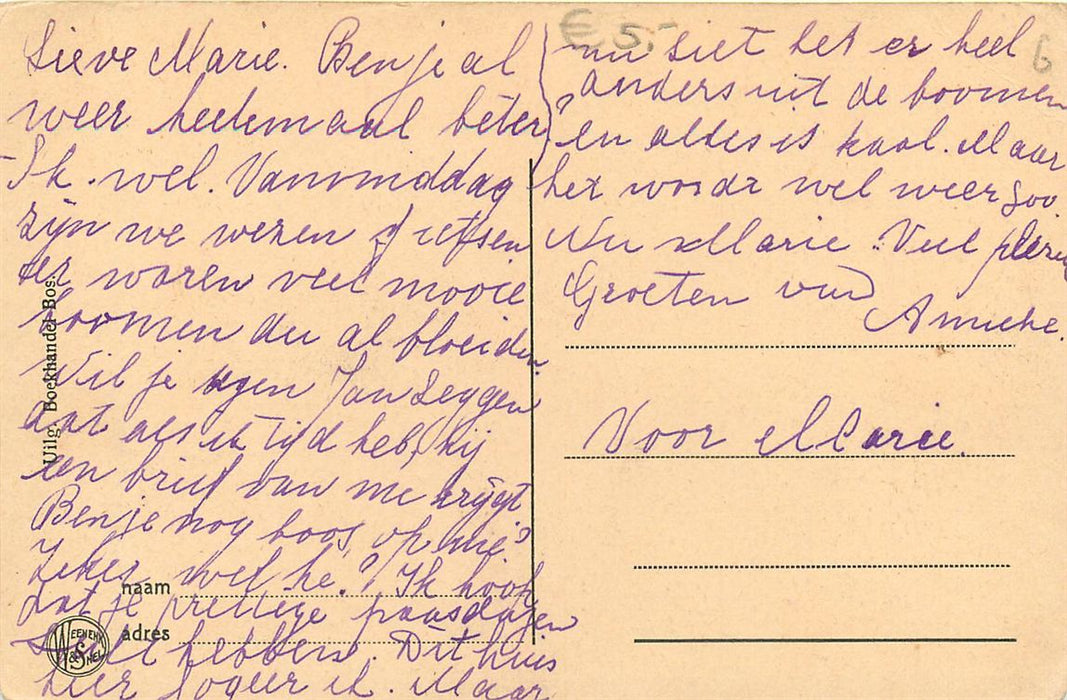 Lieve Marie. Ben je al
weer heelemaal beter?
Ik wel. Vanmiddag
zijn we wezen fietsen
er waren veel mooie
boomen die al bloeiden
Wil je tegen Jan zeggen
dat als ik tijd heb, hij
een brief van me krijgt
Ben je nog boos op mij?
Zeker wel he? Ik hoop
dat je prettige paasdagen
hebben. Dit huis
hier logeer ik. Maar
nu siet het er heel
anders uit de boomen
en alles is kaal. Maar
het wordt wel weer goo
Nu Marie. Veel plezie
Groeten van
Annieke.
Voor Marie.
naam
adres
Uitg. Boekhandel Bos.
WEENENK & SNEL
€ 5.-
6